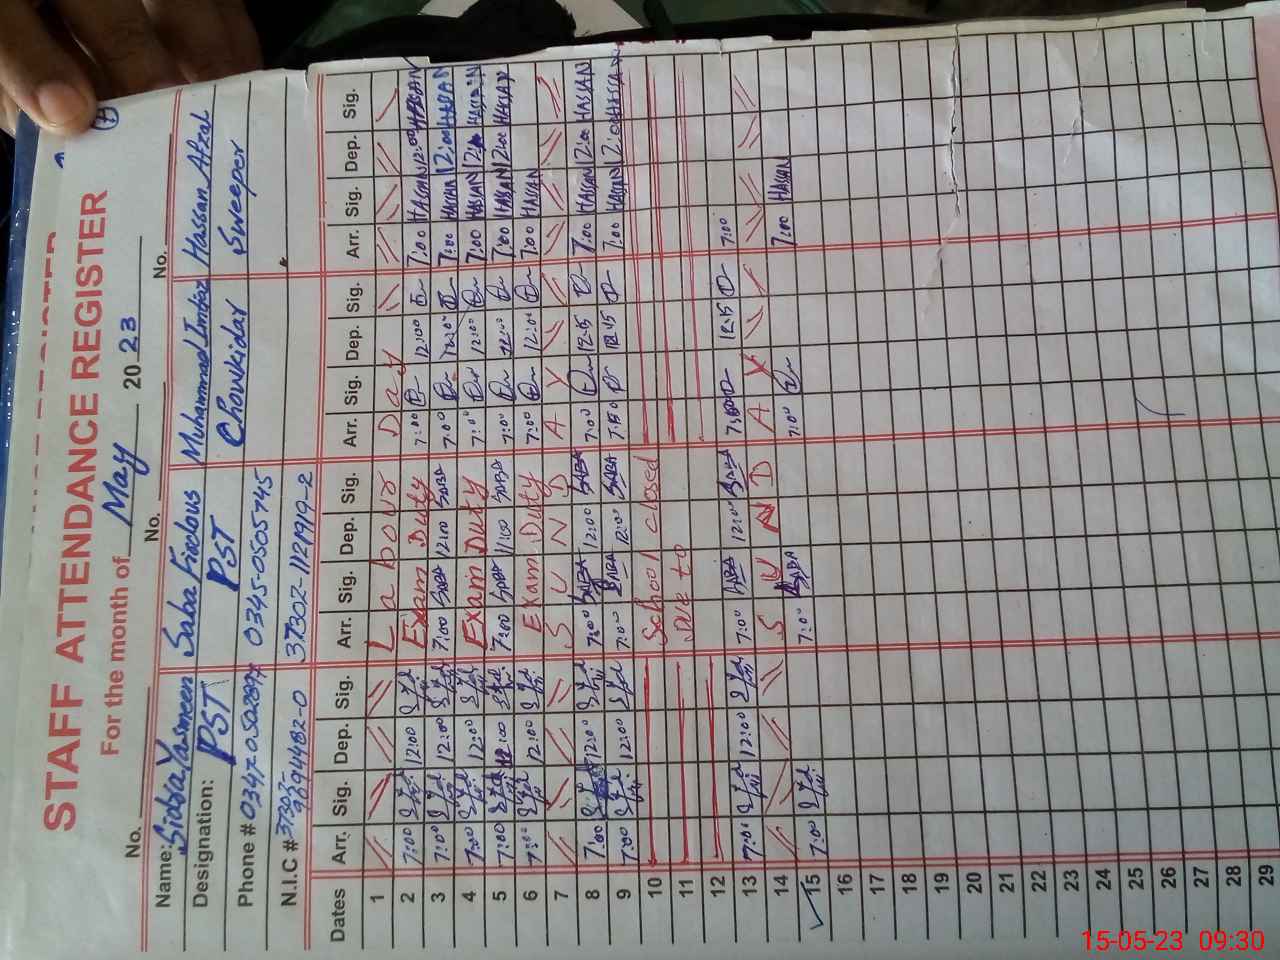 STAFF ATTENDANCE REGISTER
For the month of May 2023
No. No. No.
Name: Sidra Yasmeen Saba Firdous Muhammad Imtiaz Hassan Afzal
Designation: PST PST Chowkidar Sweeper
Phone # 0345-0505745
N.I.C # 37302-1121919-2
Dates Arr. Sig. Dep. Sig. Arr. Sig. Dep. Sig. Arr. Sig. Dep. Sig. Arr. Sig. Dep. Sig.
1 Labour Day
2 7:00 12:00 Exam Duty 7:00 12:00 7:00 HASSAN 12:00 HASSAN
3 7:00 12:00 7:00 SABA 12:00 SABA 7:00 12:00 7:00 HASSAN 12:00 HASSAN
4 7:00 12:00 Exam Duty 7:00 12:00 7:00 HASSAN HASSAN
5 7:00 12:00 7:00 SABA 11:00 SABA 7:00 7:00 HASSAN 12:00 HASSAN
6 7:00 12:00 Exam Duty 7:00 12:00 7:00 HASSAN
7 S U N D A Y
8 7:00 12:00 7:00 SABA 12:00 SABA 7:00 12:15 7:00 HASSAN 12:00 HASSAN
9 7:00 12:00 7:00 SABA 12:00 SABA 12:15 7:00 HASSAN 12:00 HASSAN
10 School closed
11 Due to
12
13 7:00 12:00 7:00 SABA 12:00 SABA 12:15 7:00
14 S U N D A Y
15 7:00 7:00 SABA 7:00 7:00 HASSAN
16
17
18
19
20
21
22
23
24
25
26
27
28
29
15-05-23 09:30